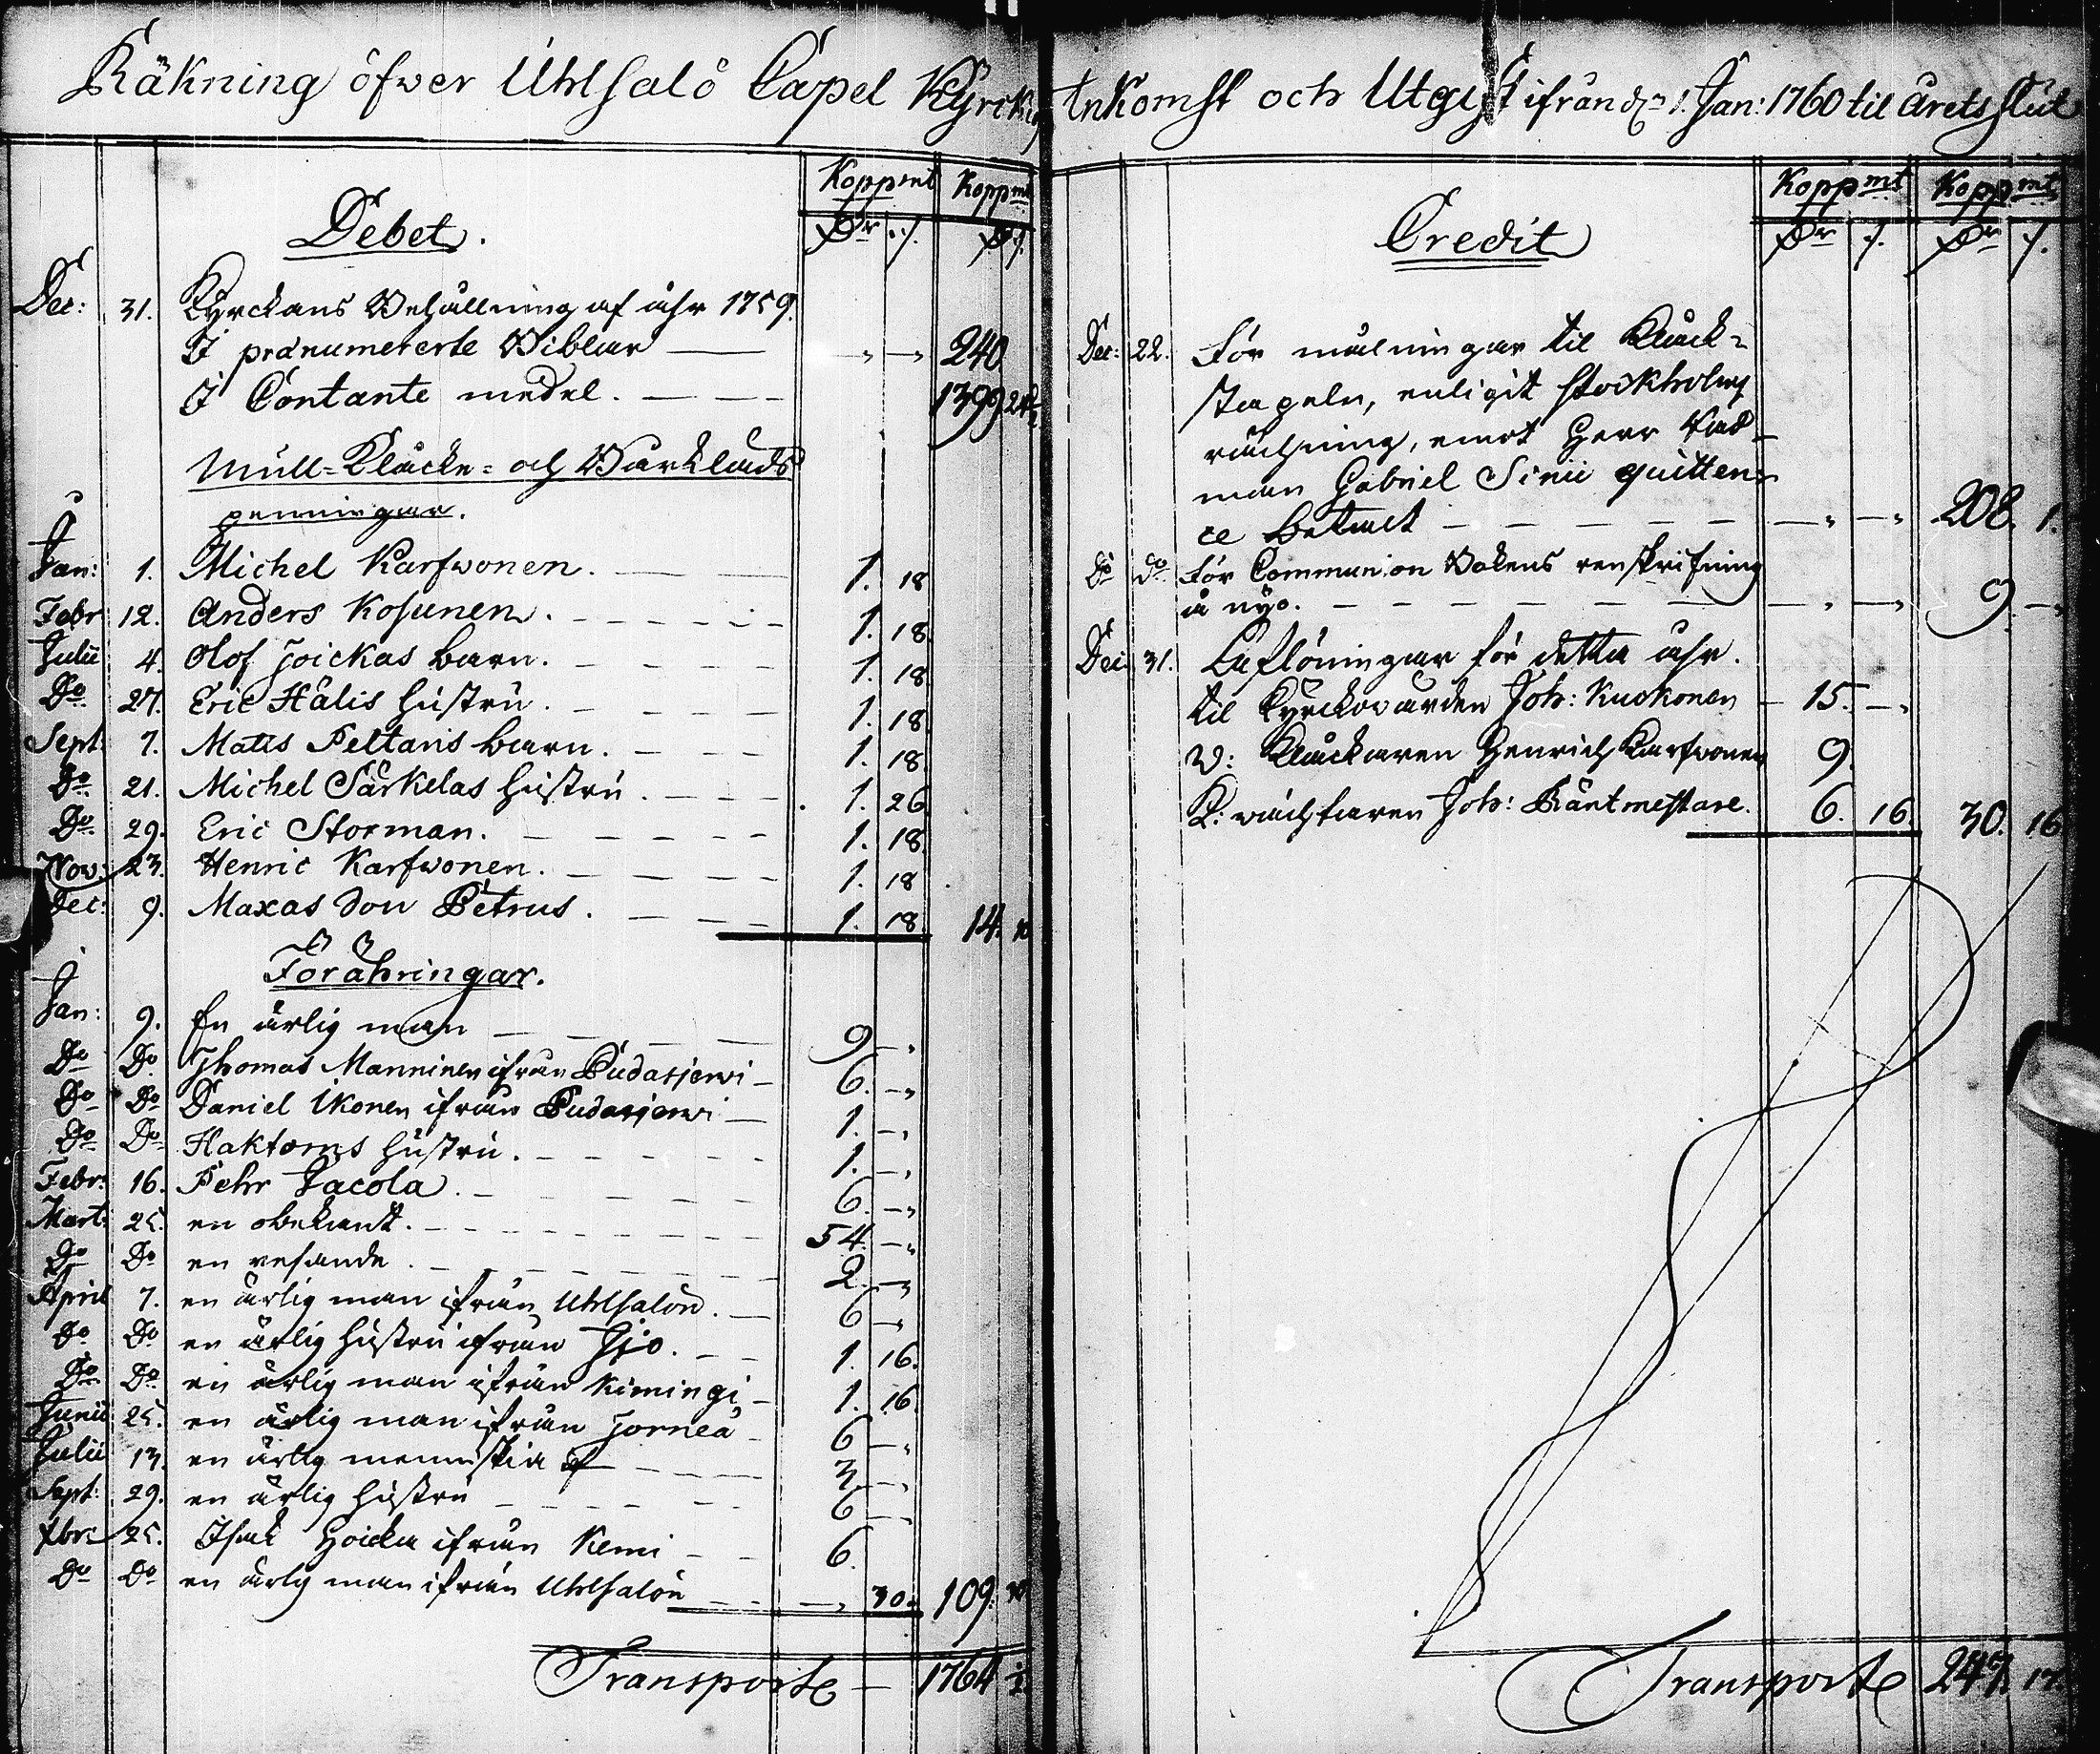 Räkning öfwer Uhlsalö Capel Kyrckos Inkomst och Utgift ifrån d. 1. Jan: 1760 til årets slut
Koppmt Koppmt
Debet.
Dr ./. D ./.
Dec: 31. Kyrckans Behållning af åhr 1759.
I prænumererte Biblar — 240
I Contante medel. — 1399 24½
Mull- Klåcke- och Bårklads
penningar.
Jan: 1. Michel Karfwonen. 1. 18
Febr 12. Anders Kosunen. 1. 18.
Julii 4. Olof Joickas barn. 1. 18
Do 27. Eric Hälis hustru. 1. 18
Sept: 7. Matts Peltaris barn. 1. 18.
Do 21. Michel Särkelas hustru. 1. 26
Do 29. Eric Storman. 1. 18.
Nov: 23. Henric Karfwonen. 1. 18
Dec: 9. Maxas Son Petrus. 1. 18. 14. 10
Förähringar.
Jan: 9. En ärlig man 9 —
Do Do Thomas Manninen ifrån Pudasjerwi 6. —
Do Do Daniel Ikonen ifrån Pudasjerwi 1. —
Do Do Haktorns hustru. 1. —
Febr: 16. Pehr Jacola. 6. —
Mart: 25. en obekant. 54 —
Do Do en resande. 2. —
April 7. en ärlig man ifrån Uhlsalön. 6 —
Do Do en ärlig hustru ifrån Ijo. 1. 16.
Do Do en ärlig man ifrån Kimingi 1. 16
Junii 25. en ärlig man ifrån Torneå 6 —
Julii 13. en ärlig menniskia 3. —
Sept: 29. en ärlig hustru 6 —
Xbr: 25. Isak Hoicka ifrån Kemi 6.
Do Do en ärlig man ifrån Uhlsalön — 30. 109. 30
Transporte — 1764
Koppmt Koppmt
Credit
Dr ./. Dr ./.
Dec: 22. För målningar til Klåck-
stapeln, enligit Stockholms
räckning, emot Herr Råd-
man Gabriel Sinii quitten-
ce betalt — 208. 1.
Do Do För Communion Bokens renskrifning
å nyo. — 9. —
Dec: 31. Aflöningar för detta åhr.
til Kyrckowärden Joh: Kuokonen — 15. —
v: Klåckaren Henrich Karfwonen 9.
K: wächtaren Joh: Räntmestare. 6. 16. 30. 16
Transporte 247. 17.